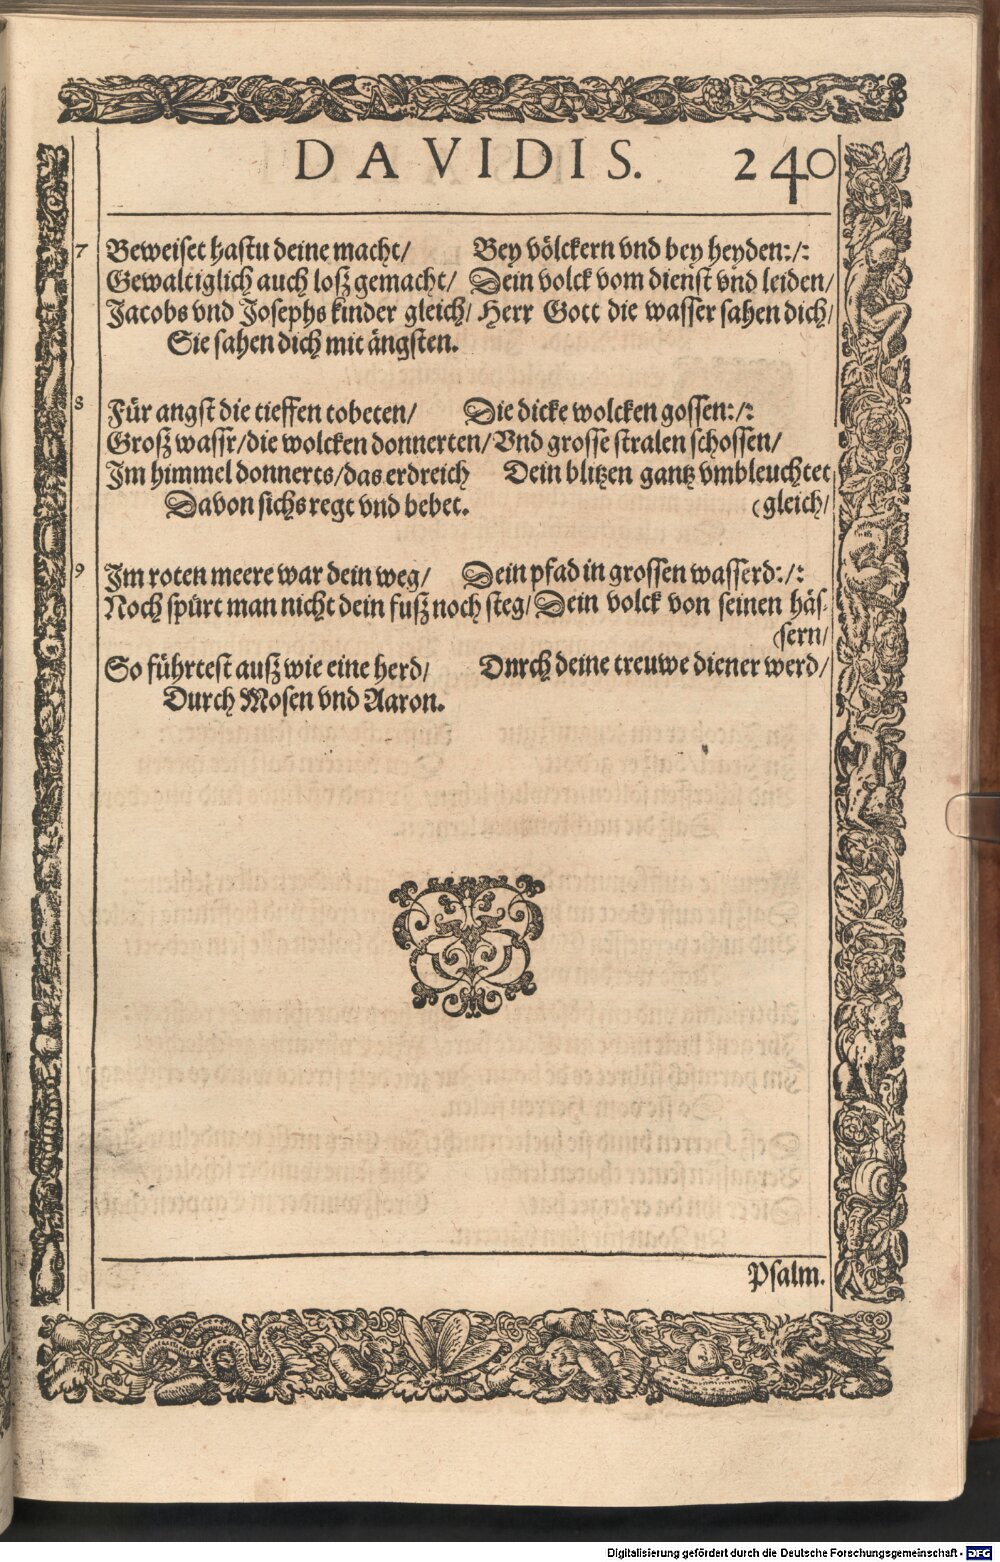 DAVIDIS. 240
7 Beweiset hastu deine macht/ Bey völckern vnd bey heyden:/:
Gewaltiglich auch loß gemacht/ Dein volck vom dienst vnd leiden/
Jacobs vnd Josephs kinder gleich/ Herr Gott die wasser sahen dich/
Sie sahen dich mit ängsten.
8 Für angst die tieffen tobeten/ Die dicke wolcken gossen:/:
Groß wassr/die wolcken donnerten/Vnd grosse stralen schossen/
Im himmel donnerts/das erdreich Dein blitzen gantz vmbleuchtet
Davon sichs regt vnd bebet. (gleich/
9 Im roten meere war dein weg/ Dein pfad in grossen wasserd:/:
Noch spürt man nicht dein fuß noch steg/Dein volck von seinen häs-
(sern/
So führtest auß wie eine herd/ Durch deine treuwe diener werd/
Durch Mosen vnd Aaron.
Psalm.
Digitalisierung gefördert durch die Deutsche Forschungsgemeinschaft - DFG